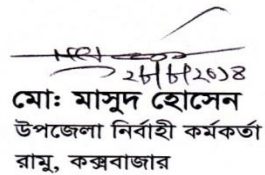 মোঃ মাসুদ হোসেন
উপজেলা নির্বাহী কর্মকর্তা
রামু, কক্সবাজার